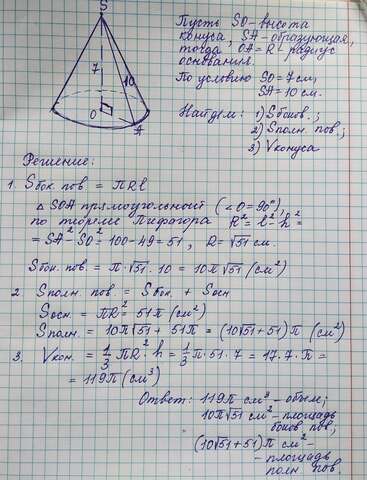 S
7
10
O
A
Пусть SO - высота
конуса, SA - образующая,
тогда OA = R - радиус
основания.
По условию SO = 7 см,
SA = 10 см.
Найдем: 1) Sбоков.;
2) Sполн. пов.;
3) Vконуса
Решение:
1. Sбок. пов. = πRl
△ SOA прямоугольный (∠O = 90°),
по теореме Пифагора R² = l² - h² =
= SA² - SO² = 100 - 49 = 51, R = √51 см.
Sбок. пов. = π · √51 · 10 = 10π√51 (см²)
2 Sполн. пов. = Sбок. + Sосн
Sосн. = πR² = 51π (см²)
Sполн. = 10π√51 + 51π = (10√51 + 51)π (см²)
3. Vкон. = 1/3 πR² · h = 1/3 π · 51 · 7 = 17 · 7 · π =
= 119π (см³)
Ответ: 119π см³ - объем;
10π√51 см² - площадь
боков. пов.;
(10√51 + 51)π см² -
- площадь
полн. пов.